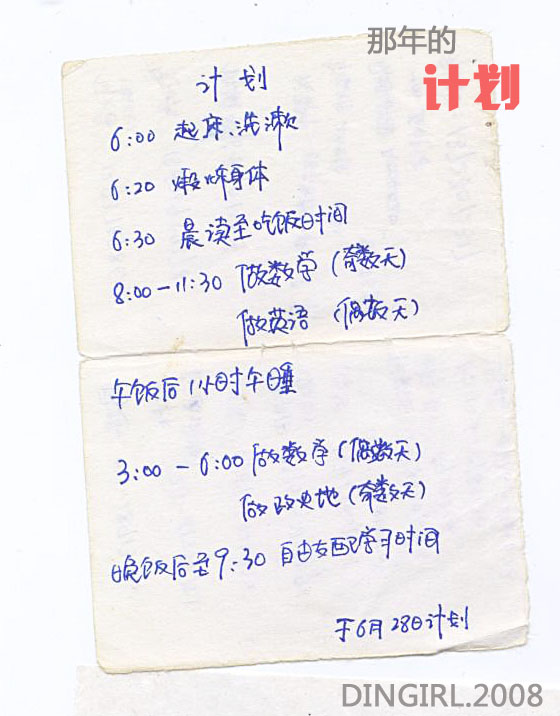 那年的
计划
计划
6:00 起床、洗漱
6:20 煅炼身体
6:30 晨读至吃饭时间
8:00-11:30 做数学(奇数天)
做英语(偶数天)
午饭后1小时午睡
3:00-6:00 做数学(偶数天)
做政史地(奇数天)
晚饭后至9:30 自由支配学习时间
于6月28日计划
DINGIRL.2008